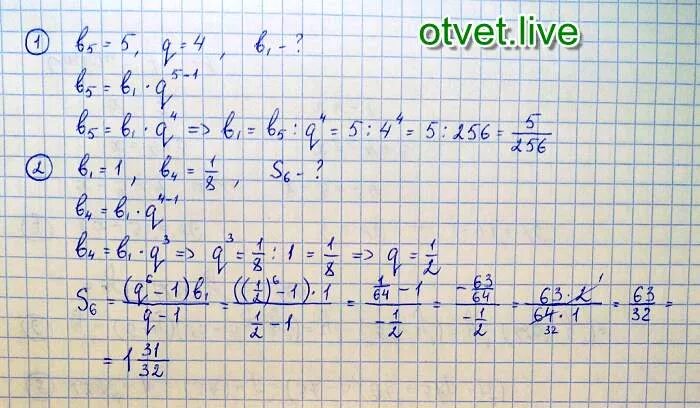 otvet.live
① b₅ = 5, q = 4, b₁ - ?
b₅ = b₁ · q⁵⁻¹
b₅ = b₁ · q⁴ => b₁ = b₅ : q⁴ = 5 : 4⁴ = 5 : 256 = 5/256
② b₁ = 1, b₄ = 1/8, S₆ - ?
b₄ = b₁ · q⁴⁻¹
b₄ = b₁ · q³ => q³ = 1/8 : 1 = 1/8 => q = 1/2
S₆ = (q⁶ - 1)b₁/(q - 1) = ((1/2)⁶ - 1) · 1/(1/2 - 1) = (1/64 - 1)/(-1/2) = (-63/64)/(-1/2) = 63 · 2̸ ¹/(6̸4̸ ₃₂ · 1) = 63/32 =
= 1 31/32